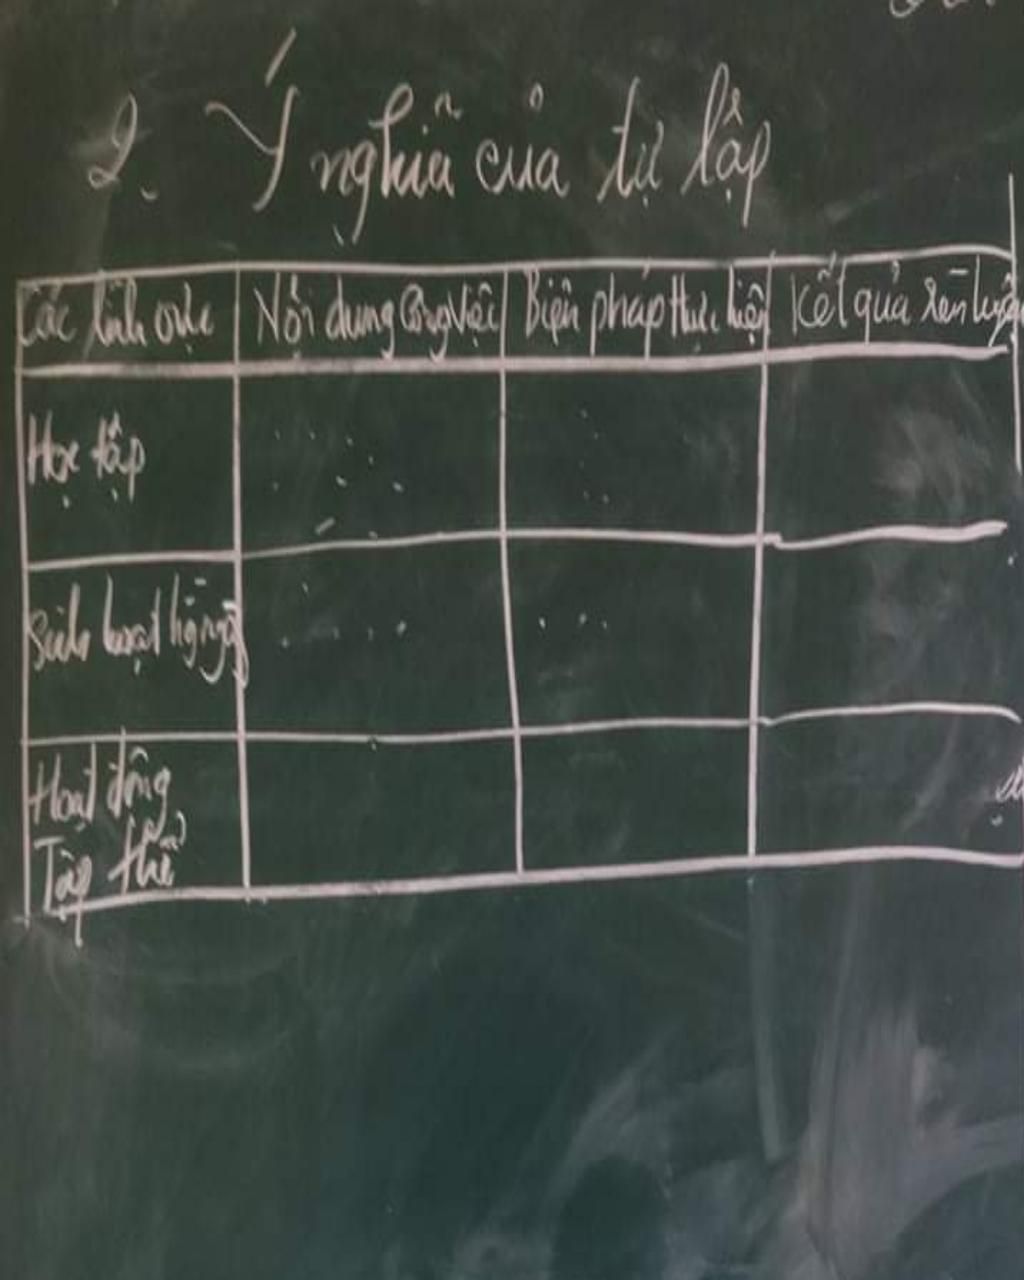 2. Ý nghĩa của tự lập
Các lĩnh vực Nội dung công việc Biện pháp thực hiện Kết quả rèn luyện
Học tập
Sinh hoạt hàng ngày
Hoạt động
Tập thể